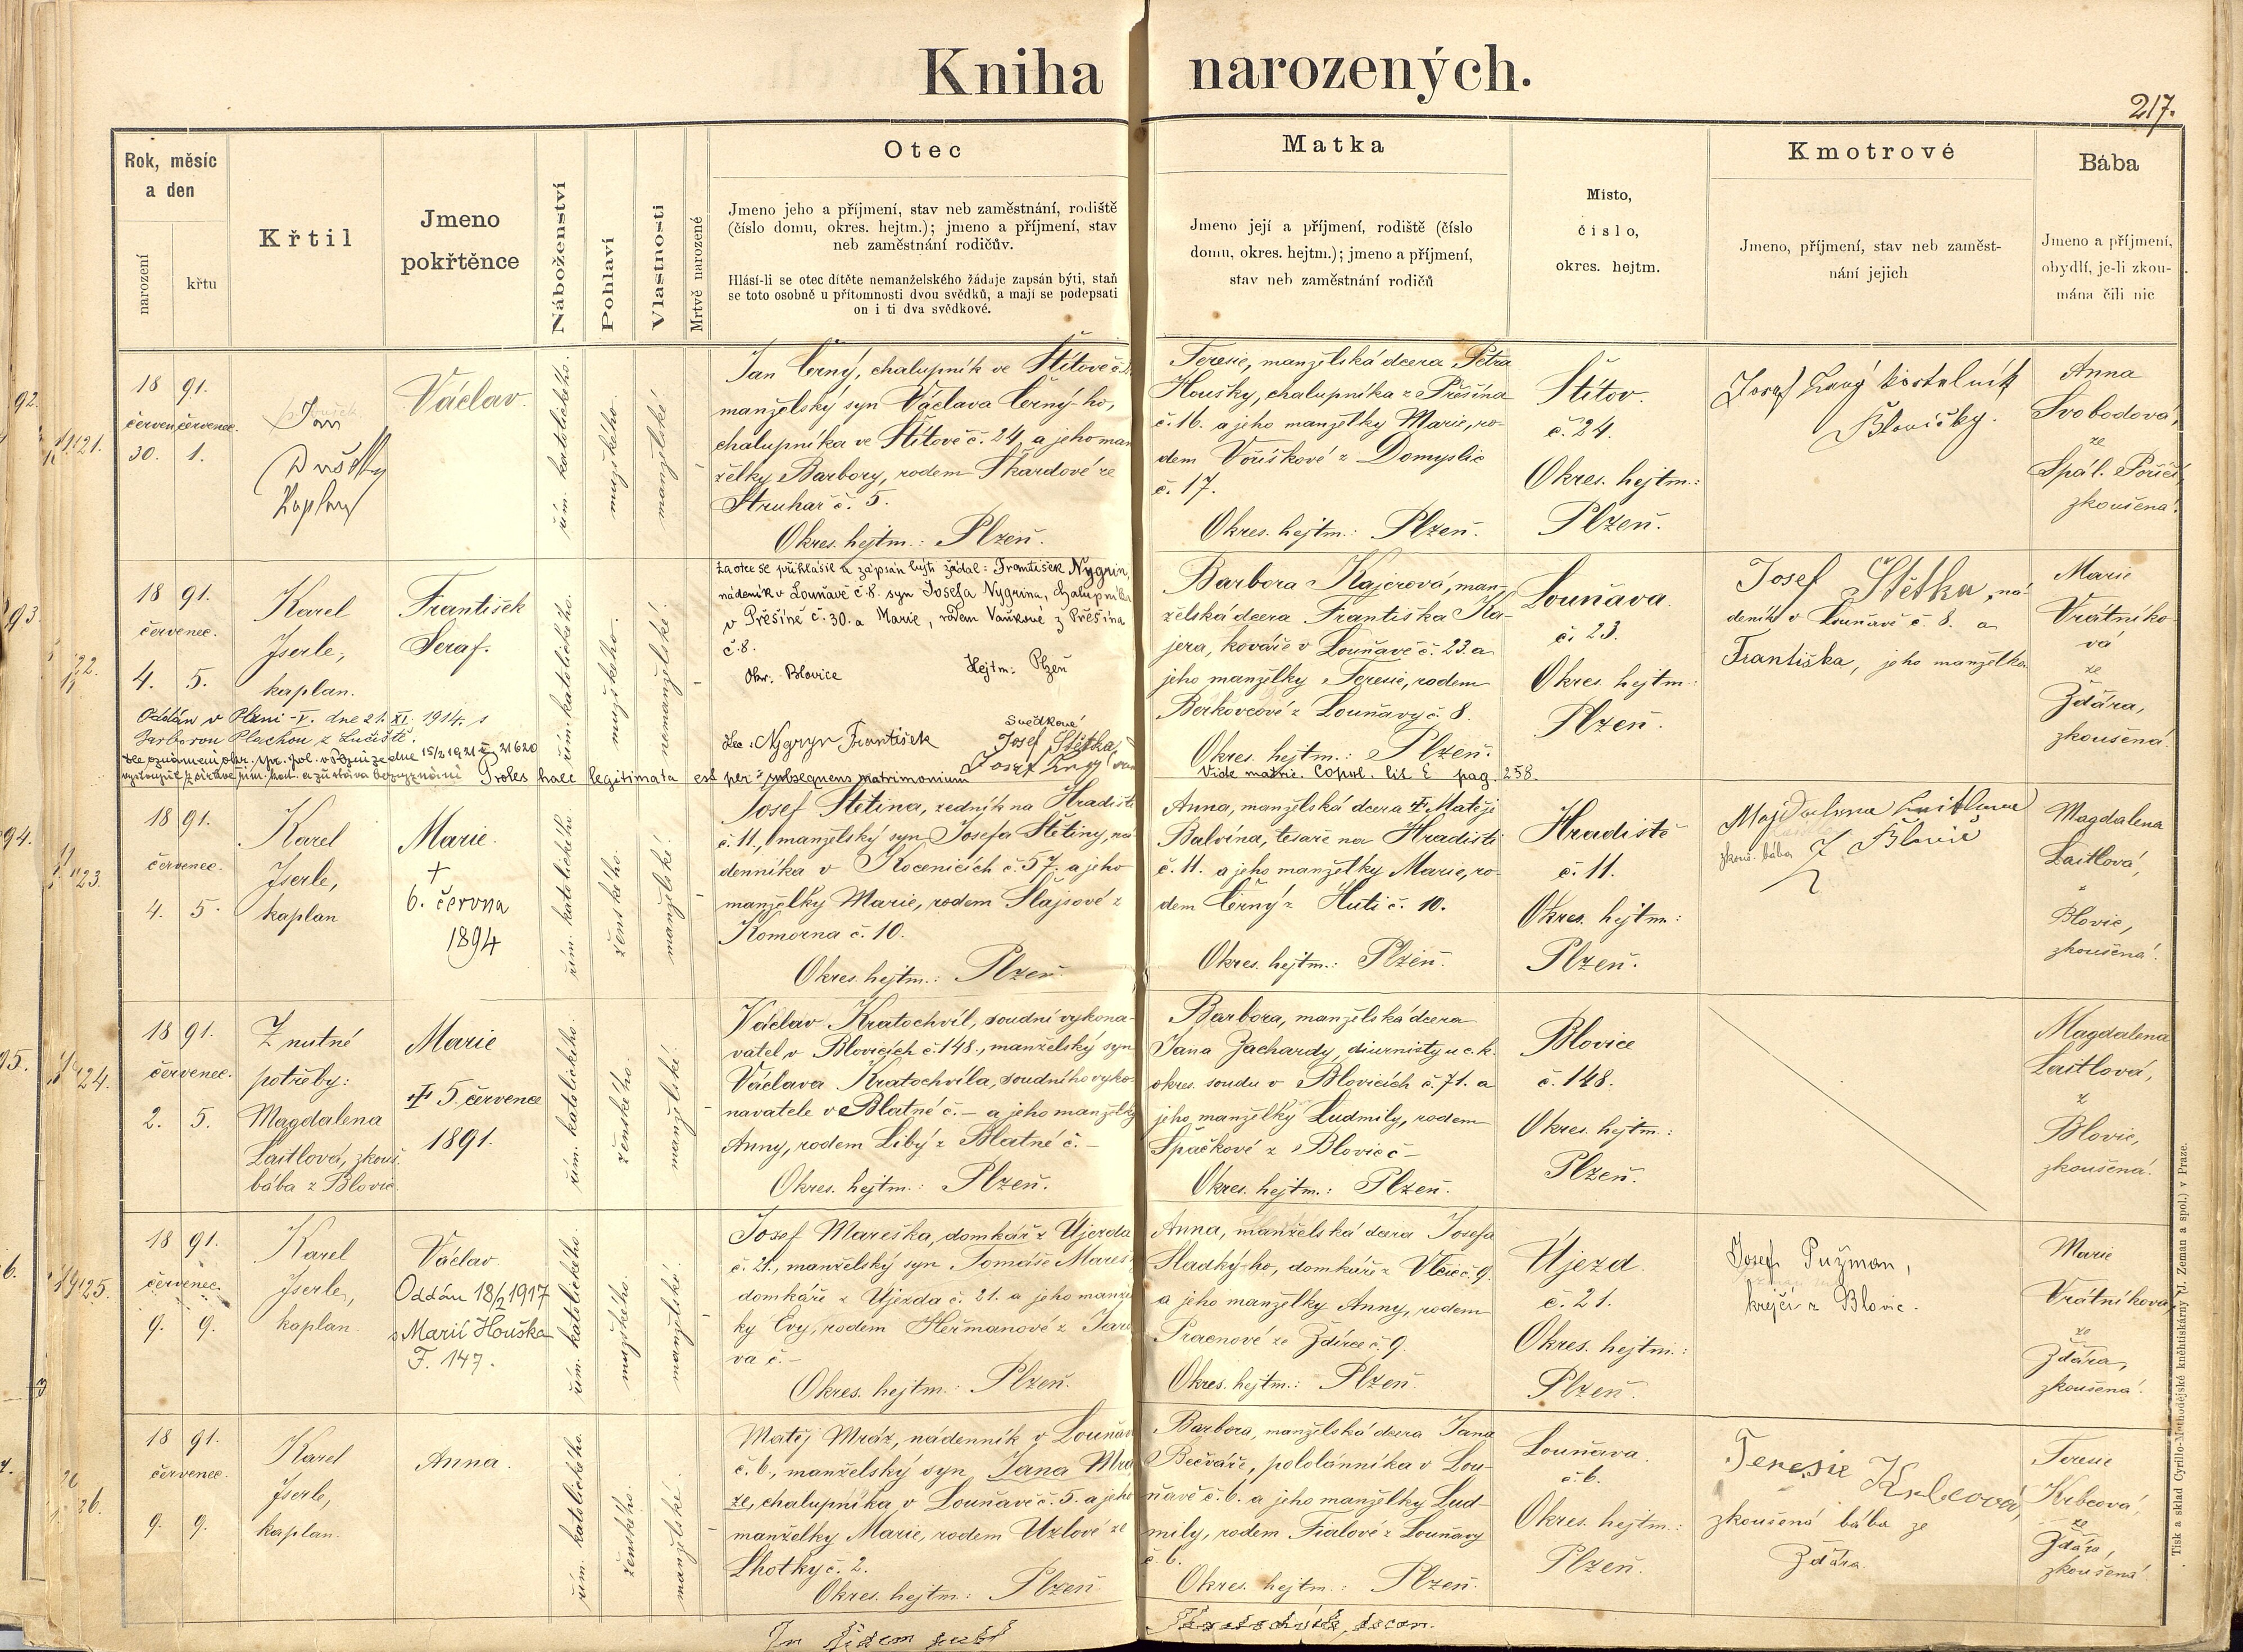 Kniha narozených.
217.
Rok, měsíc
a den
narození
křtu
Křtil
Jmeno
pokřtěnce
Náboženství
Pohlaví
Vlastnosti
Mrtvě narozené
Otec
Jmeno jeho a příjmení, stav neb zaměstnání, rodiště
(číslo domu, okres. hejtm.); jmeno a příjmení, stav
neb zaměstnání rodičův.
Hlásí-li se otec dítěte nemanželského žádaje zapsán býti, staň
se toto osobně u přítomnosti dvou svědků, a mají se podepsati
on i ti dva svědkové.
Matka
Jmeno její a příjmení, rodiště (číslo
domu, okres. hejtm.); jmeno a příjmení,
stav neb zaměstnání rodičů
Místo,
číslo,
okres. hejtm.
Kmotrové
Jmeno, příjmení, stav neb zaměst-
nání jejich
Bába
Jmeno a příjmení,
obydlí, je-li zkou-
mána čili nic
1891.
červen červenec.
30. 1.
Jan
Dušek
kaplan
Václav.
řím. katolického.
mužského.
manželské.
Jan Černý, chalupník ve Štítově č.
manželský syn Václava Černý-ho,
chalupníka ve Štítově č. 24. a jeho man
želky Barbory, rodem Škardové ze
Struhař č. 5.
Okres. hejtm.: Plzeň.
Teresie, manželská dcera Petra
Houšky, chalupníka z Přešína
č. 16. a jeho manželky Marie, ro-
dem Voříškové z Domyslic
č. 17.
Okres. hejtm.: Plzeň.
Štítov.
č. 24.
Okres. hejtm.:
Plzeň.
Josef kostelník
Blovičky.
Anna
Svobodová,
ze
Spál. Poříčí,
zkoušená.
1891.
červenec.
4. 5.
Karel
Iserle,
kaplan.
František
Seraf.
řím. katolického.
mužského.
nemanželské.
Oddán v Plzni - V. dne 21. XI. 1914. s
Barborou Plachou z Lučiště.
Za otce se přihlásil a zapsán býti žádal: František Nygrin,
nádeník v Louňavě č. 8. syn Josefa Nygrina, chalupníka
v Přešíně č. 30. a Marie, rodem Vaňkové z Přešína
č. 8.
Okr. Blovice Hejtm. Plzeň
Svědkové
Nygryn František Josef Štětka,
Proles haec legitimata est per subsequens matrimonium
Vide matric. Copul. lit E pag. 258.
Barbora Kajerová, man-
želská dcera Františka Ka-
jera, kováře v Louňavě č. 23. a
jeho manželky Teresie, rodem
Berkovcové z Louňavy č. 8.
Okres. hejtm.: Plzeň.
Louňava.
č. 23.
Okres. hejtm.:
Plzeň.
Josef Štětka, ná-
deník v Louňavě č. 8. a
Františka, jeho manželka
Marie
Vrátníko-
vá
ze
Ždára,
zkoušená.
1891.
červenec.
4. 5.
Karel
Iserle,
kaplan
Marie.
+
6. června
1894
řím. katolického.
ženského.
manželské.
Josef Štětina, zedník na Hradišti
č. 11., manželský syn Josefa Štětiny, ná-
denníka v Kocenicích č. 57. a jeho
manželky Marie, rodem Šlajsové z
Komorna č. 10.
Okres. hejtm.: Plzeň.
Anna, manželská dcera + Matěje
Balvína, tesaře na Hradišti
č. 11. a jeho manželky Marie, ro-
dem Černý z Huti č. 10.
Okres. hejtm.: Plzeň.
Hradiště
č. 11.
Okres. hejtm.:
Plzeň.
Majdalena
zkouš. bába z Blovic
Magdalena
Laitlová,
z
Blovic,
zkoušená.
1891.
červenec.
2. 5.
Z nutné
potřeby:
Magdalena
Laitlová, zkouš.
bába z Blovic.
Marie
+ 5. července
1891.
řím. katolického.
ženského.
manželské.
Václav Kratochvíl, soudní vykona-
vatel v Blovicích č. 148., manželský syn
Václava Kratochvíla, soudního vyko-
navatele v Blatné č. – a jeho manželky
Anny, rodem Libý z Blatné č. –
Okres. hejtm.: Plzeň.
Barbora, manželská dcera
Jana Zachardy, diurnisty u c. k.
okres. soudu v Blovicích č. 71. a
jeho manželky Ludmily, rodem
Špačkové z Blovic č –
Okres. hejtm.: Plzeň.
Blovice
č. 148.
Okres. hejtm.:
Plzeň.
Magdalena
Laitlová,
z
Blovic,
zkoušená.
1891.
červenec.
9. 9.
Karel
Iserle,
kaplan
Václav.
Oddán 18/2 1917
s Marií Houška
F. 147.
řím. katolického.
mužského.
manželské.
Josef Mareška, domkář z Újezda
č. 21., manželský syn Tomáše Mareš
domkáře z Újezda č. 21. a jeho manžel
ky Evy, rodem Heřmanové z
va č. –
Okres. hejtm.: Plzeň.
Anna, manželská dcera Josefa
Sladký-ho, domkáře z Vlčic č. 9.
a jeho manželky Anny, rodem
ze Ždírce č. 9.
Okres. hejtm.: Plzeň.
Újezd.
č. 21.
Okres. hejtm.:
Plzeň.
Josef Pužman,
krejčí z Blovic.
Marie
Vrátníková,
ze
Ždára,
zkoušená.
1891.
červenec.
9. 9.
Karel
Iserle,
kaplan.
Anna.
řím. katolického.
ženského.
manželské.
Matěj Mráz, nádenník v Louňav
č. 6., manželský syn Jana Mrá
ze, chalupníka v Louňavě č. 5. a jeho
manželky Marie, rodem Uzlové ze
Lhotky č. 2.
Okres. hejtm.: Plzeň.
Barbora, manželská dcera Jana
Bečváře, pololánníka v Lou-
ňavě č. 6. a jeho manželky Lud-
mily, rodem Fialové z Louňavy
č. 6.
Okres. hejtm.: Plzeň.
Louňava.
č. 6.
Okres. hejtm.:
Plzeň.
Teresie Krbcová,
zkoušená bába ze
Ždára.
Teresie
Krbcová,
ze
Ždára,
zkoušená.
Tisk a sklad Cyrillo-Methodějské kněhtiskárny (J. Zeman a spol.) v Praze.